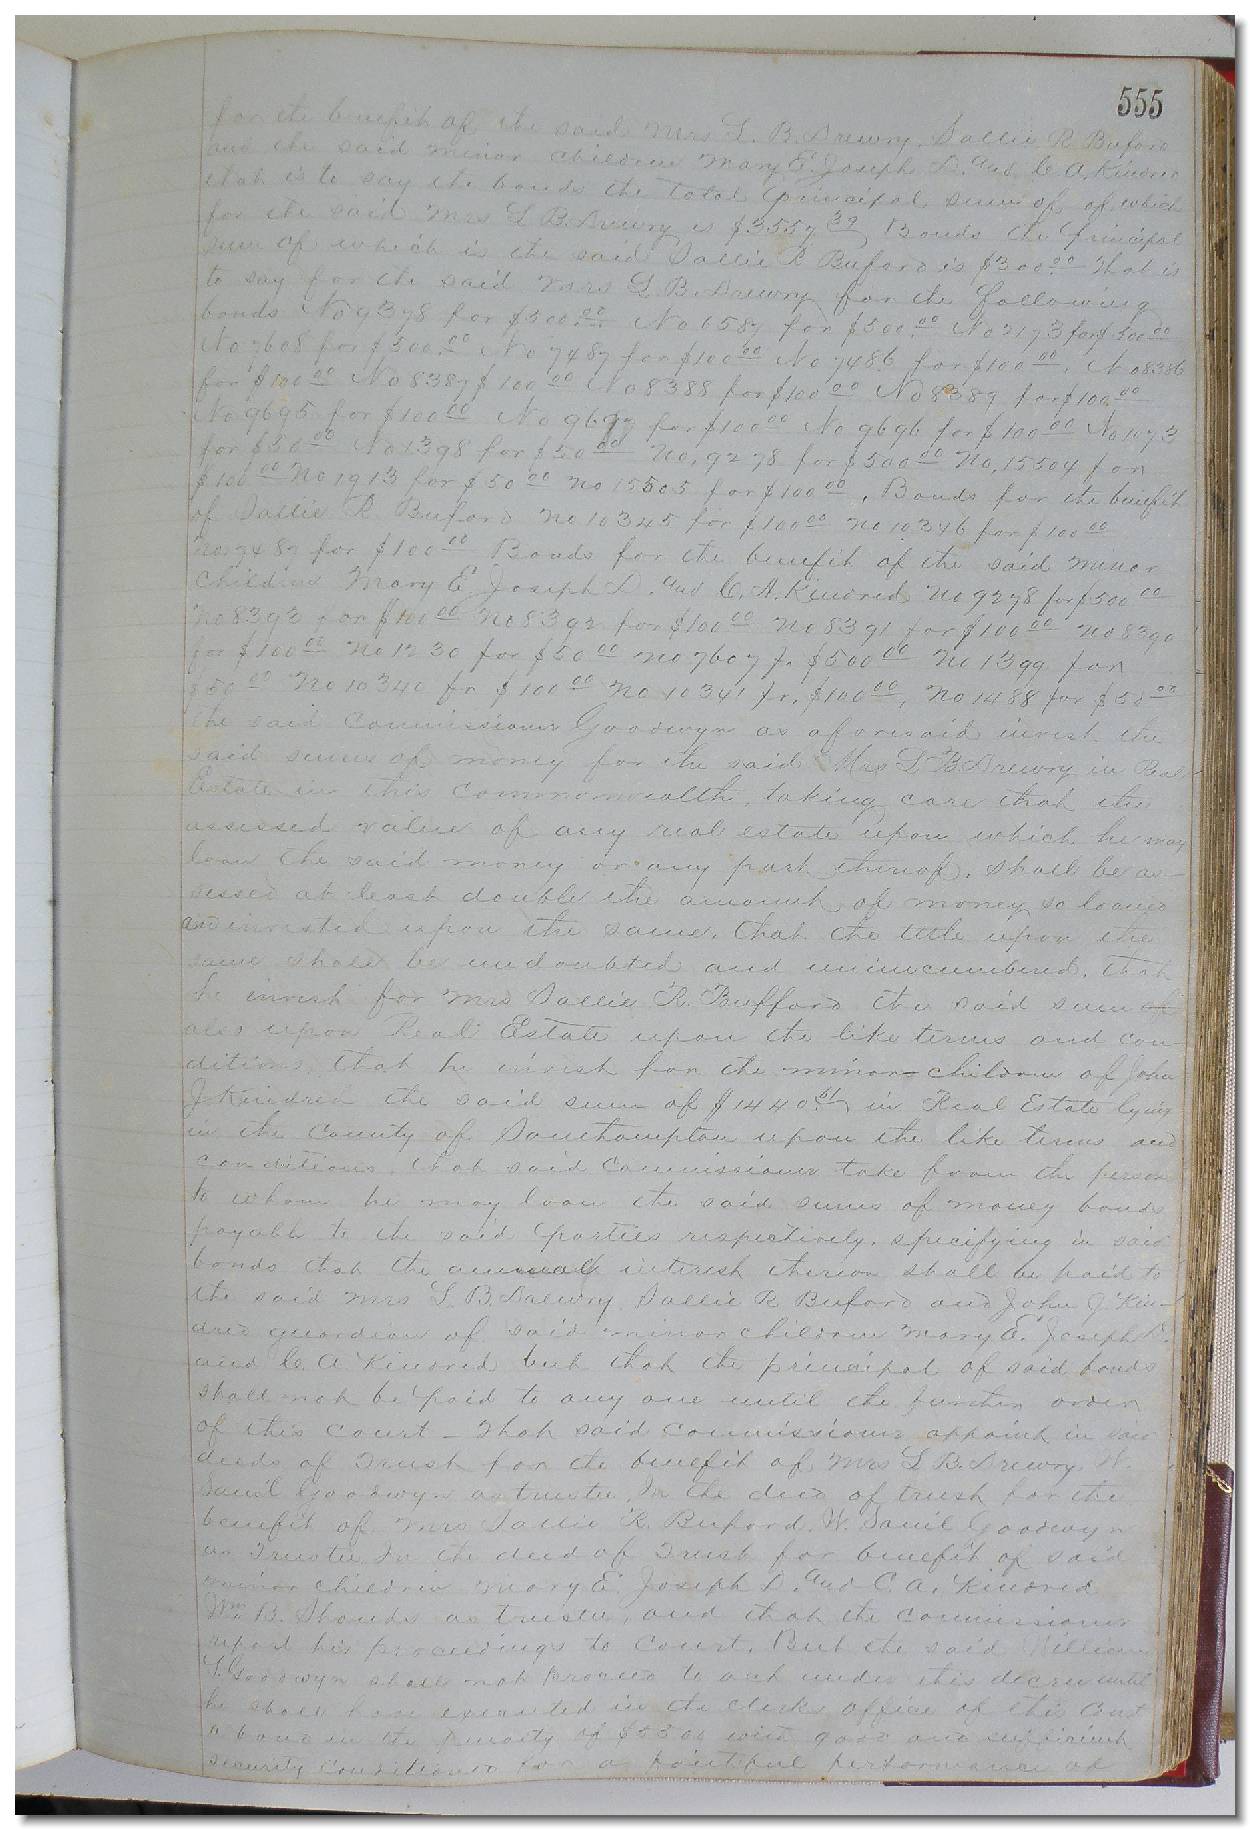 555
for the benefit of the said Mrs L. B. Drewry, Sallie R Buford
and the said minor children Mary E. Joseph D. and C. A. Kindred
that is to say the bonds the total principal sum of, of which
for the said Mrs L B. Drewry is $3557 39 Bonds the principal
sum of which is the said Sallie R Buford is $300.00 That is
to say for the said Mrs L B. Drewry for the following
bonds No 9378 for $500.00 No 6587 for $500.00 No 2173 for $500 00
No 7608 for $500.00 No 7487 for $100 00 No 7486 for $100 00, No 8386
for $100 00 No 8387 $100 00 No 8388 for $100 00 No 8389 for $100.00
No 9695 for $100 00 No 9697 for $100 00 No 9696 for $100 00 No 1073
for $50 00 No 1398 for $50 00 No, 9278 for $500 00 No, 15504 for
$100 00 No 1913 for $50 00 no 15505 for $100 00, Bonds for the benefit
of Sallie R Buford no 10345 for $100 00 no 10346 for $100 00
no 7487 for $100 00 Bonds for the benefit of the said minor
children Mary E Joseph D. and C. A. Kindred no 9278 for $500 00
no 8393 for $100 00 no 8392 for $100 00 no 8391 for $100 00 no 8390
for $100 00 no 1230 for $50 00 no 7607 f. $500 00 no 1399 for
$50 00 no 10340 fr $100 00 no 10341 fr. $100 00, no 1488 for $50 00
the said Commissioner Goodwyn as aforesaid invest the
said sums of money for the said Mrs L B Drewry in Real
Estate in this Commonwealth, taking care that the
assessed value of any real estate upon which he may
loan the said money or any part thereof. shall be as-
sessed at least double the amount of money so loaned
and invested upon the same. that the title upon the
same shall be undoubted and unincumbered. that
he invest for Mrs Sallie R. Bufford the said sum of
also upon Real Estate upon the like terms and con-
ditions that he invest for the minor children of John
J. Kindred the said sum of $1440.51 in Real Estate lying
in the County of Southampton upon the like terms and
conditions. that said Commissioner take from the person
to whom he may loan the said sums of money bonds
payable to the said parties respectively. specifying in said
bonds that the annual interest thereon shall be paid to
the said Mrs L. B. Drewry Sallie R Buford and John J. Kin-
dred guardian of said minor children Mary E. Joseph D.
and C. A. Kindred but that the principal of said bonds
shall not be paid to any one until the further order
of this court - That said Commissioner appoint in said
deeds of Trust for the benefit of Mrs L B. Drewry W.
Samil Goodwyn as trustee, In the deed of trust for the
benefit of Mrs Sallie R. Buford. W. Samil Goodwyn
as Trustee In the deed of Trust for benefit of said
minor children Mary E. Joseph D. and C. A. Kindred
Wm B. Shands as trustee, and that the Commissioner
report his proceedings to Court. But the said William
S. Goodwyn shall not proceed to act under this decree until
he shall have executed in the clerks office of this Court
a bond in the penalty of $5300 with good and sufficient
security conditioned for a faithful performance of